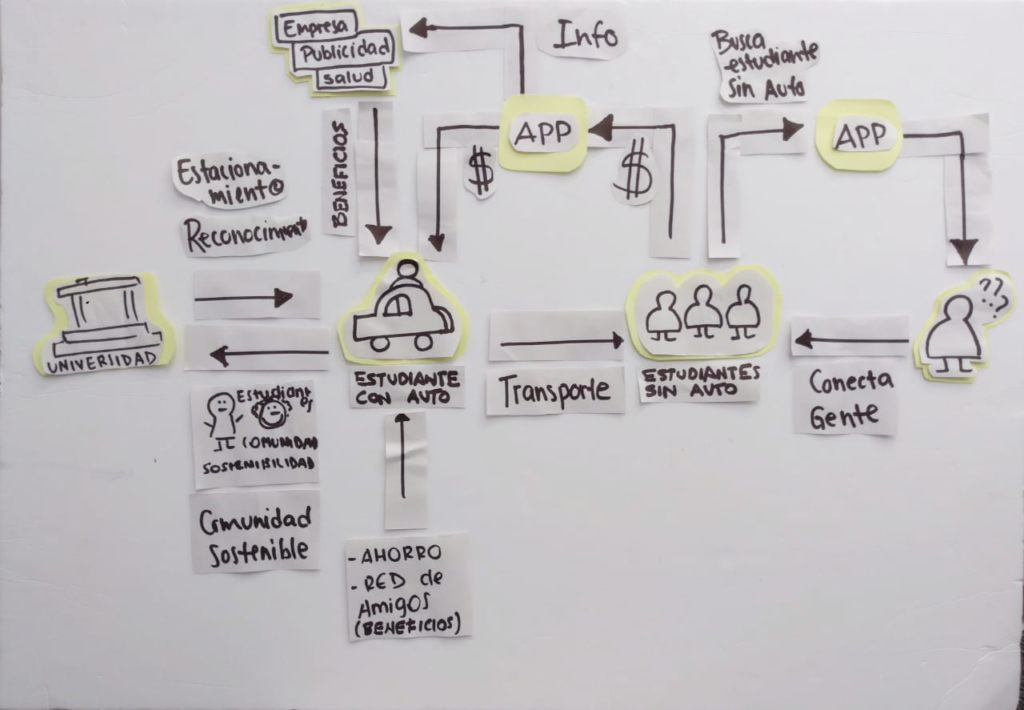 Empresa
Publicidad
salud
Info
Busca
estudiante
Sin Auto
APP
APP
$
$
BENEFICIOS
Estaciona-
miento
Reconocimiento
??
?
UNIVERIIDAD
ESTUDIANTE
CON AUTO
Transporte
ESTUDIANTES
SIN AUTO
Conecta
Gente
Estudiantes
COMUNIDAD
SOSTENIBILIDAD
Comunidad
Sostenible
- AHORRO
- RED de
Amigos
(BENEFICIOS)